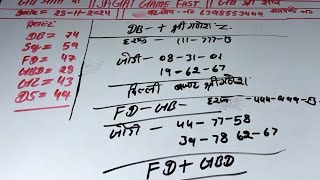 JAGAT GAME FAST
28-11-2024
6398553444
DB = 74
Sg = 59
FD = 47
GBD = 28
GL = 43
DS = 44
DB-+ श्री गणेश-
111-777-8
जोड़ी - 08-31-01
19-62-67
दिल्ली बाजार श्री गणेश
FD-GB-
444-999-
जोड़ी - 44-77-58
39-78 62-67
FD+GBD